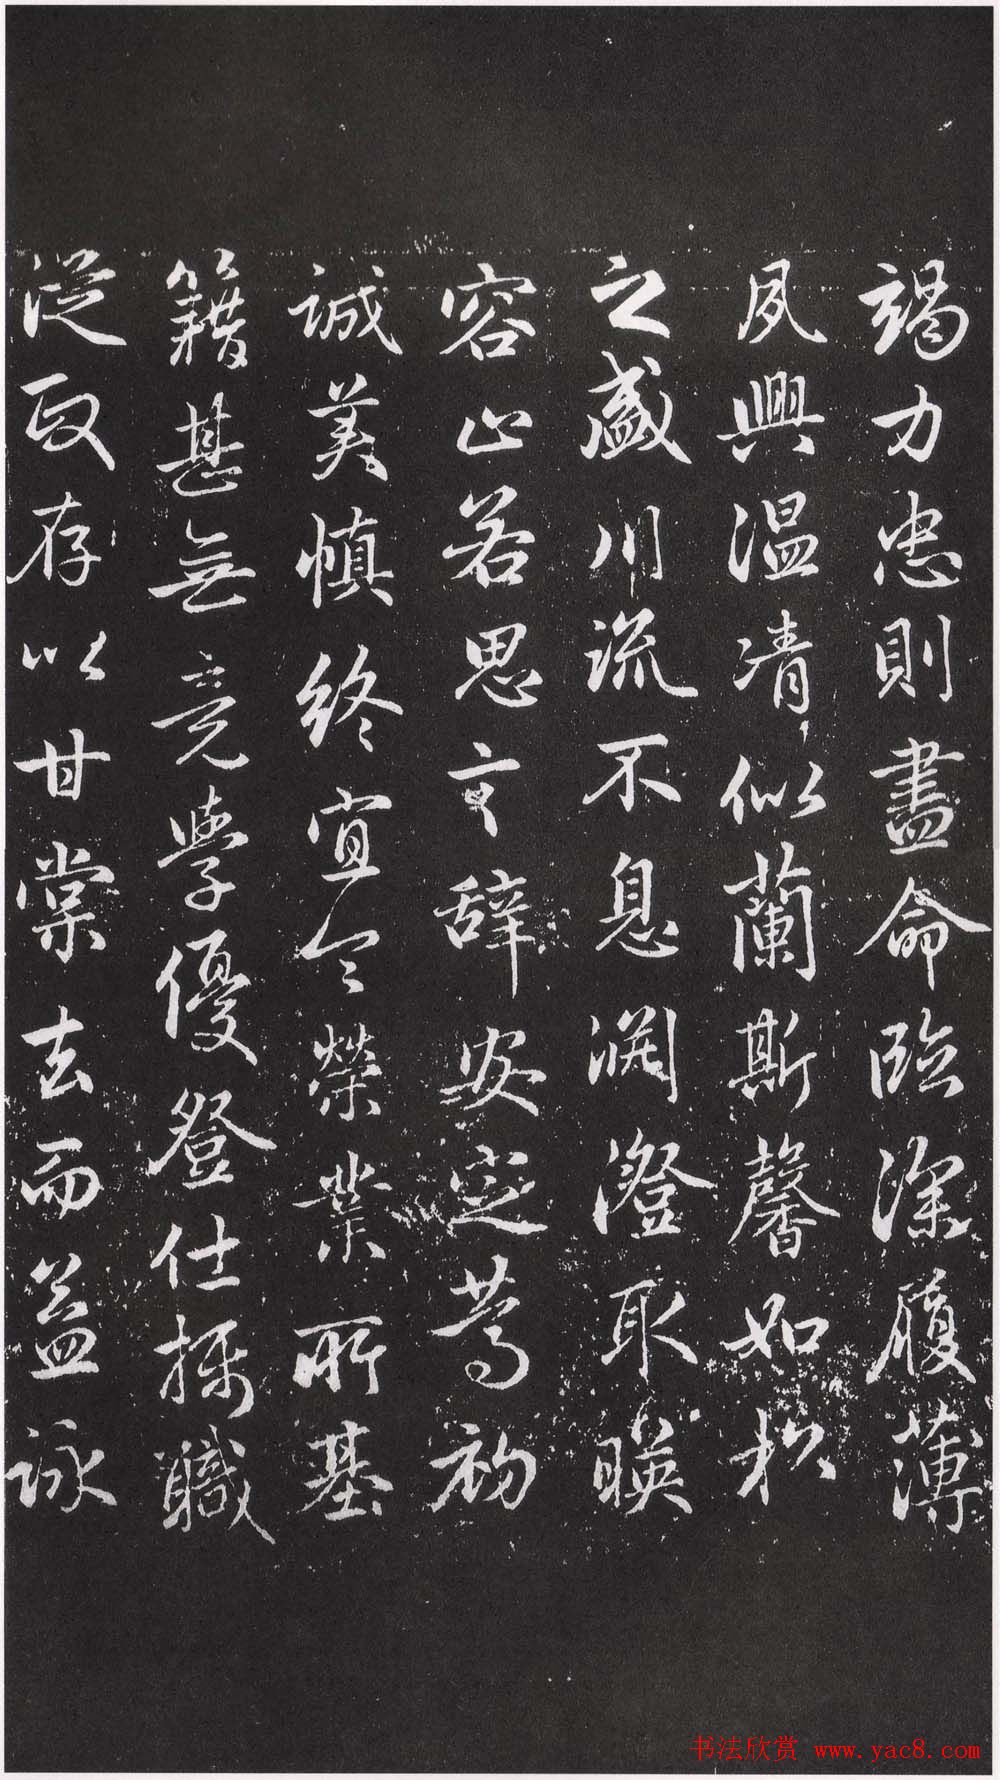 竭力忠則盡命臨深履薄
夙興溫凊似蘭斯馨如松
之盛川流不息淵澄取暎
容止若思言辞安定篤初
誠美慎終宜令榮業所基
籍甚無竟學優登仕攝職
從政存以甘棠去而益詠
书法欣赏 www.yac8.com